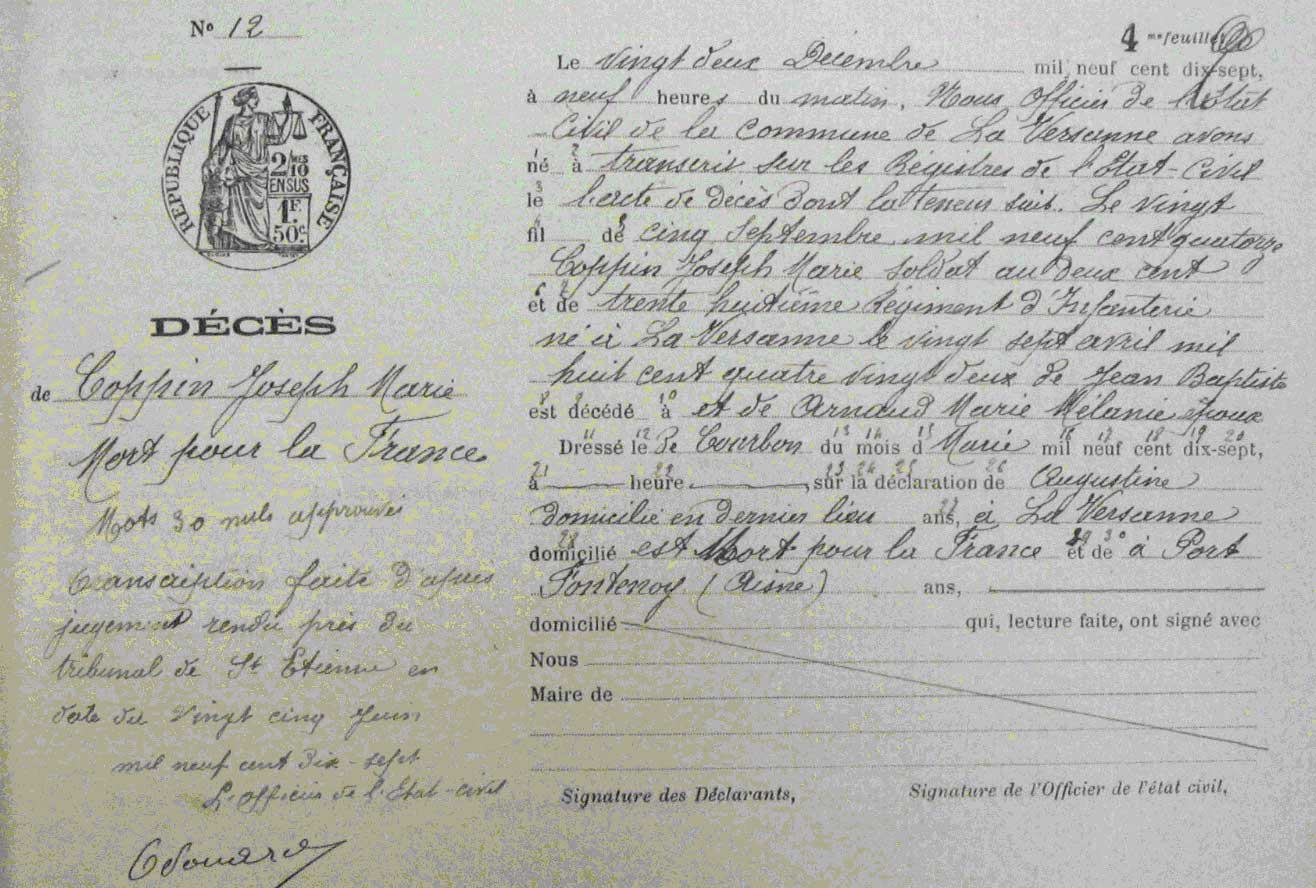 Nº 12
REPUBLIQUE FRANÇAISE
2/10 MES
EN SUS
1F.
50c
DÉCÈS
de Coppin Joseph Marie
Mort pour la France
Mots 30 nuls approuvés
transcription faite d'après
jugement rendu près du
tribunal de St Etienne en
date du vingt cinq Juin
mil neuf cent dix-sept
L'officier de l'Etat-civil
4 me feuillet
Le vingt deux Décembre mil neuf cent dix-sept,
à neuf heures du matin, Nous Officier de l'Etat
Civil de la Commune de La Versanne avons
né 1 à 2 transcrit sur les Régistres de l'Etat-Civil
le 3 l'acte de décès dont la teneur suit. Le vingt
fil 4 de 5 cinq Septembre mil neuf cent quatorze
Coppin Joseph Marie soldat au deux cent
et 6 de 7 trente huitième Régiment d'Infanterie
né à La Versanne le vingt sept avril mil
huit cent quatre vingt deux de Jean Baptiste
est 8 décédé 9 à 10 et de Arnaud Marie Mélanie époux
Dressé 11 le 12 de Courbon du 13 mois 14 d 15 Marie mil 16 neuf 17 cent 18 dix-sept, 19 20
à 21 heure 22 , sur 23 la 24 déclaration 25 de 26 Augustine
domicilié en dernier lieu ans, 27 à La Versanne
domicilié 28 est Mort pour la France et 29 de 30 à Port
Fontenoy (Aisne) ans,
domicilié qui, lecture faite, ont signé avec
Nous
Maire de
Signature des Déclarants, Signature de l'Officier de l'état civil,